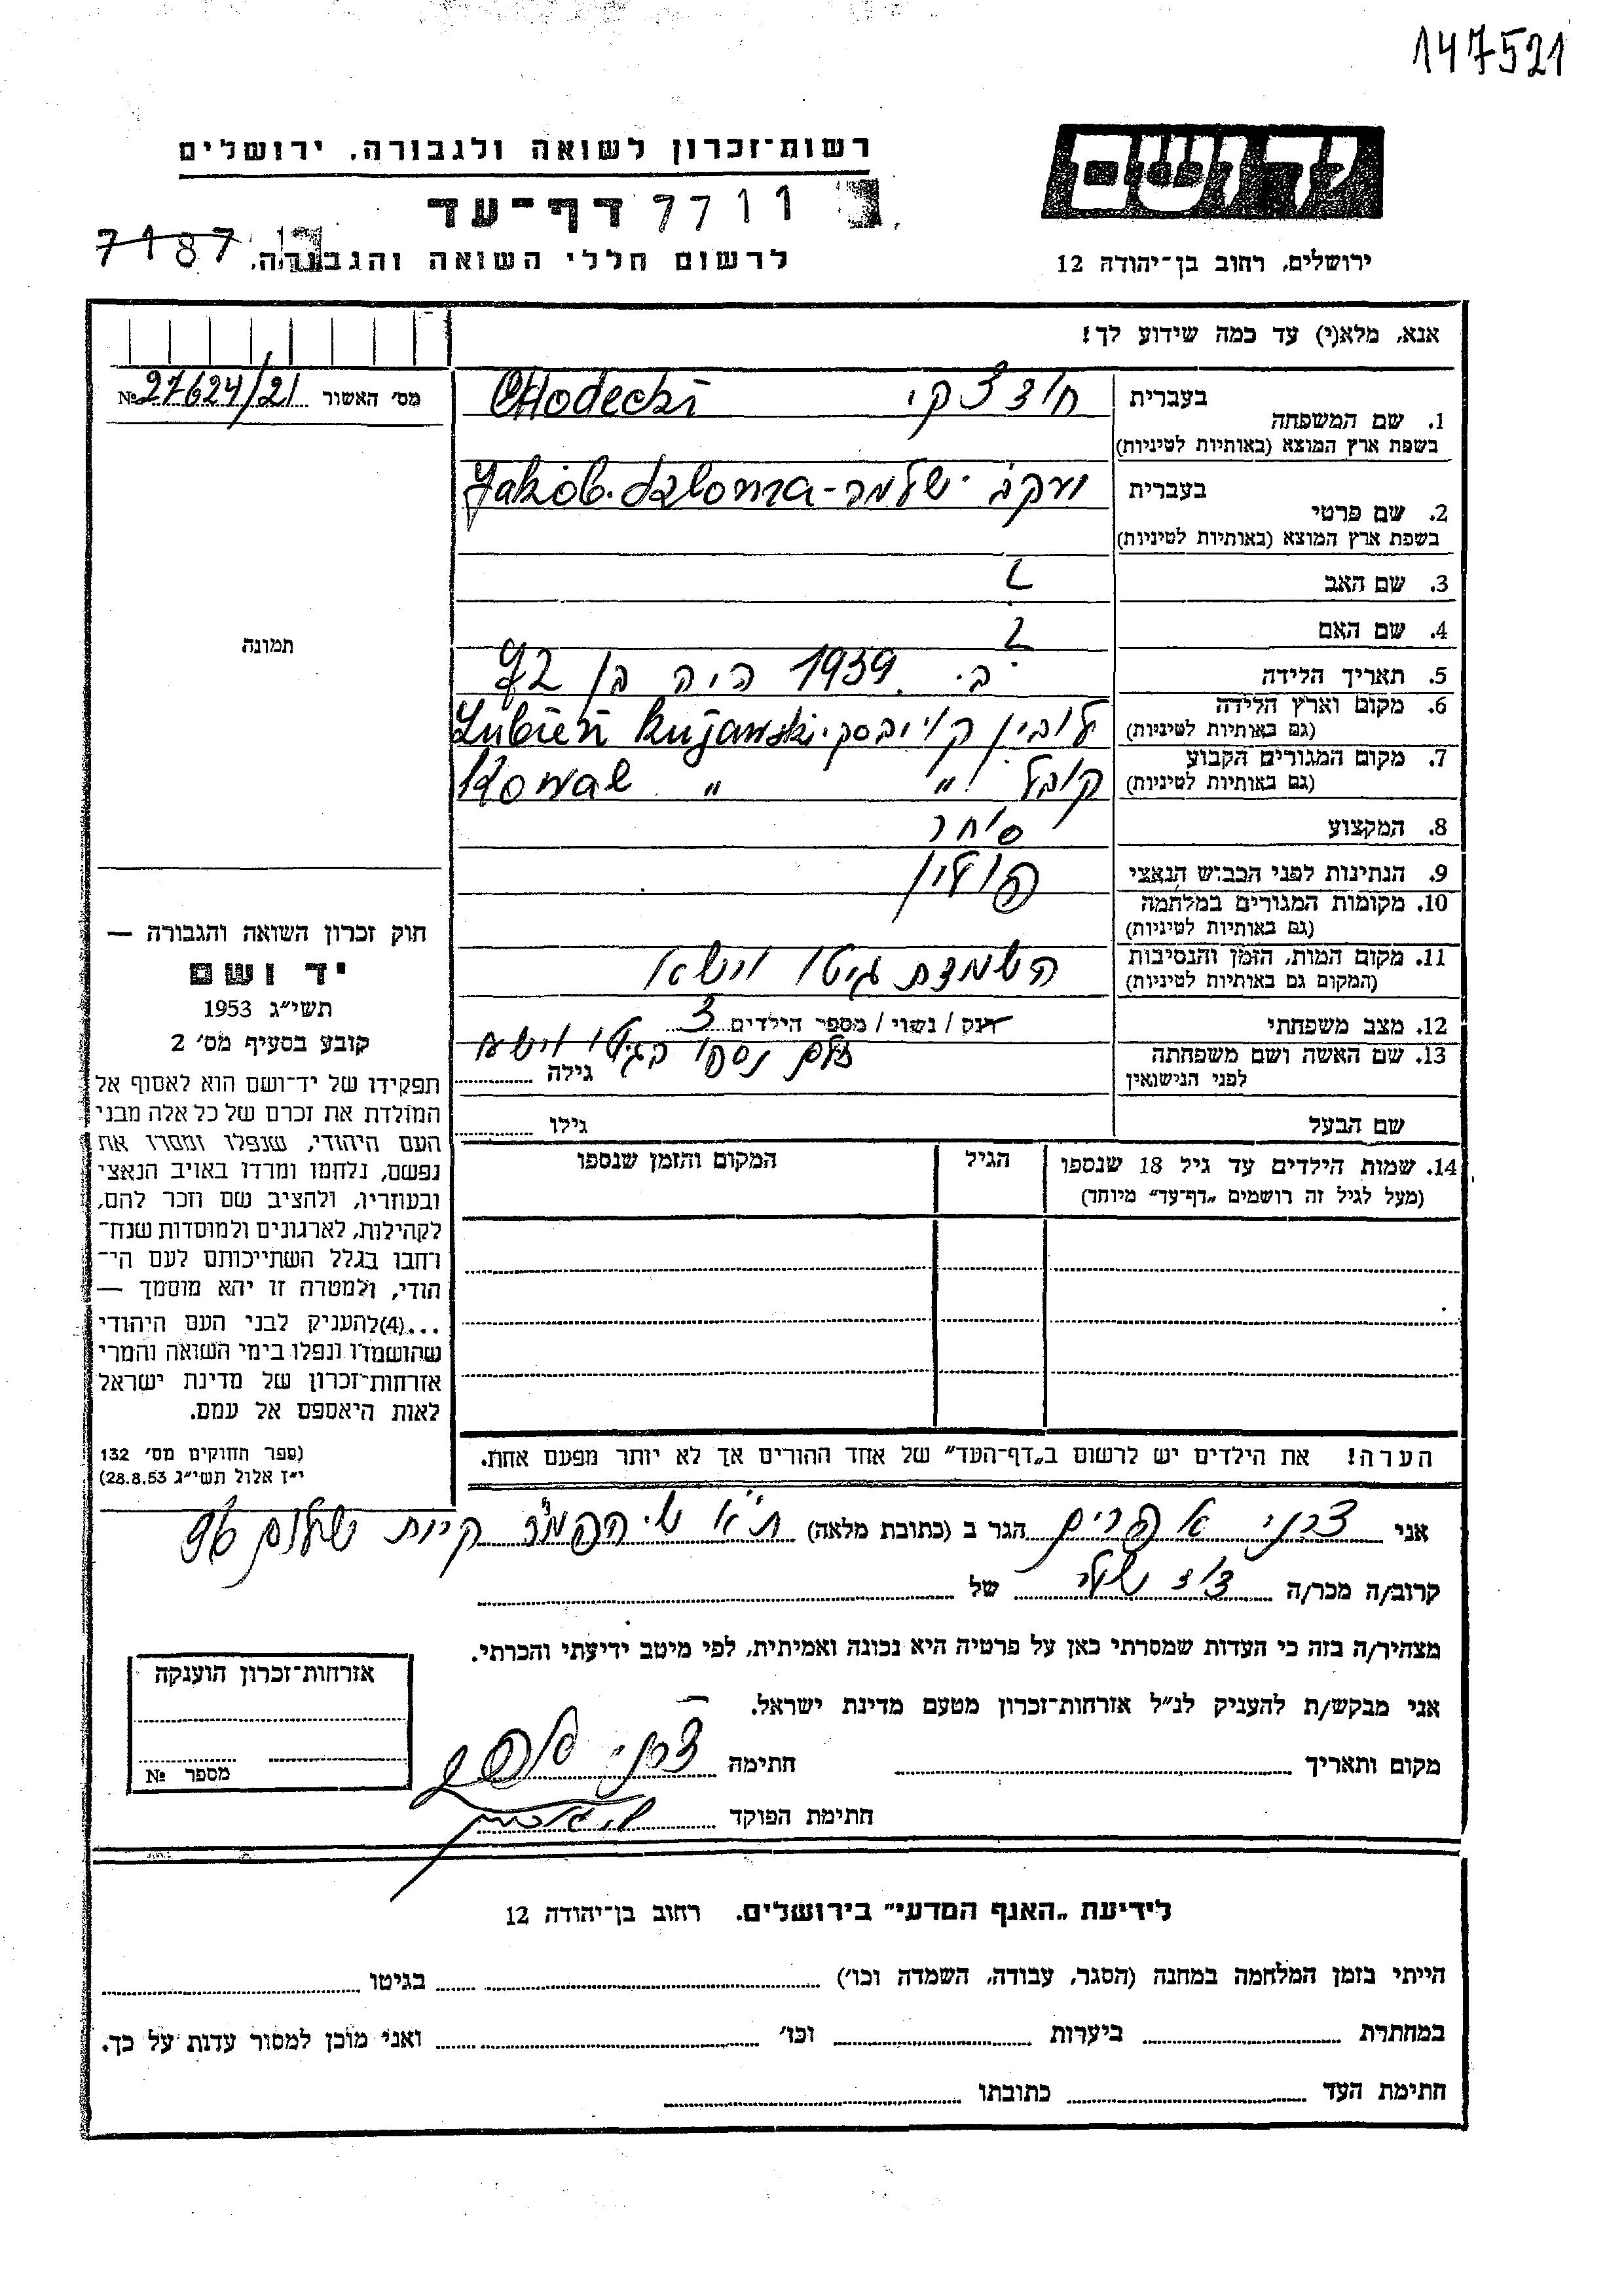 147521
רשות־זכרון לשואה ולגבורה, ירושלים
יד ושם
דף־עד 7711
7187
לרשום חללי השואה והגבורה.
ירושלים, רחוב בן־יהודה 12
אנא, מלא(י) עד כמה שידוע לך!
מס׳ האשור 27624/21 №
1. שם המשפחה
בעברית
Chodecki
בשפת ארץ המוצא (באותיות לטיניות)
2. שם פרטי
בעברית
יעקב שלמה - Jakób. Szloma
בשפת ארץ המוצא (באותיות לטיניות)
3. שם האב
4. שם האם
תמונה
5. תאריך הלידה
ב. 1939 היה בן 72
6. מקום וארץ הלידה
(גם באותיות לטיניות)
לובין קויבסקי. Lubień Kujawski
7. מקום המגורים הקבוע
(גם באותיות לטיניות)
קובל " Kowal "
8. המקצוע
סוחר
9. הנתינות לפני הכבוש הנאצי
פולין
10. מקומות המגורים במלחמה
(גם באותיות לטיניות)
11. מקום המות, הזמן והנסיבות
(המקום גם באותיות לטיניות)
השמדת גיטו
12. מצב משפחתי
רווק / נשוי / מספר הילדים 3
13. שם האשה ושם משפחתה
לפני הנישואין
כולם נספו בגיטו
גילה
שם הבעל
גילו
14. שמות הילדים עד גיל 18 שנספו
(מעל לגיל זה רושמים „דף־עד” מיוחד)
הגיל
המקום והזמן שנספו
חוק זכרון השואה והגבורה —
יד ושם
תשי״ג 1953
קובע בסעיף מס׳ 2
תפקידו של יד־ושם הוא לאסוף אל
המולדת את זכרם של כל אלה מבני
העם היהודי, שנפלו ומסרו את
נפשם, נלחמו ומרדו באויב הנאצי
ובעוזריו, ולהציב שם וזכר להם,
לקהילות, לארגונים ולמוסדות שנח־
רחבו בגלל השתייכותם לעם הי־
הודי, ולמטרה זו יהא מוסמך —
...(4)להעניק לבני העם היהודי
שהושמדו ונפלו בימי השואה והמרי
אזרחות־זכרון של מדינת ישראל
לאות היאספם אל עמם.
(ספר החוקים מס׳ 132
י״ז אלול תשי״ג 28.8.53)
הערה! את הילדים יש לרשום ב„דף־העד” של אחד ההורים אך לא יותר מפעם אחת.
אני אפרים הגר ב (כתובת מלאה) ת״א קרית שלום
קרוב/ה מכר/ה של
מצהיר/ה בזה כי העדות שמסרתי כאן על פרטיה היא נכונה ואמיתית, לפי מיטב ידיעתי והכרתי.
אני מבקש/ת להעניק לנ״ל אזרחות־זכרון מטעם מדינת ישראל.
מקום ותאריך חתימה
חתימת הפוקד
אזרחות־זכרון הוענקה
מספר №
לידיעת „האגף המדעי” בירושלים. רחוב בן־יהודה 12
הייתי בזמן המלחמה במחנה (הסגר, עבודה, השמדה וכו׳) בגיטו
במחתרת ביערות וכו׳ ואני מוכן למסור עדות על כך.
חתימת העד כתובתו